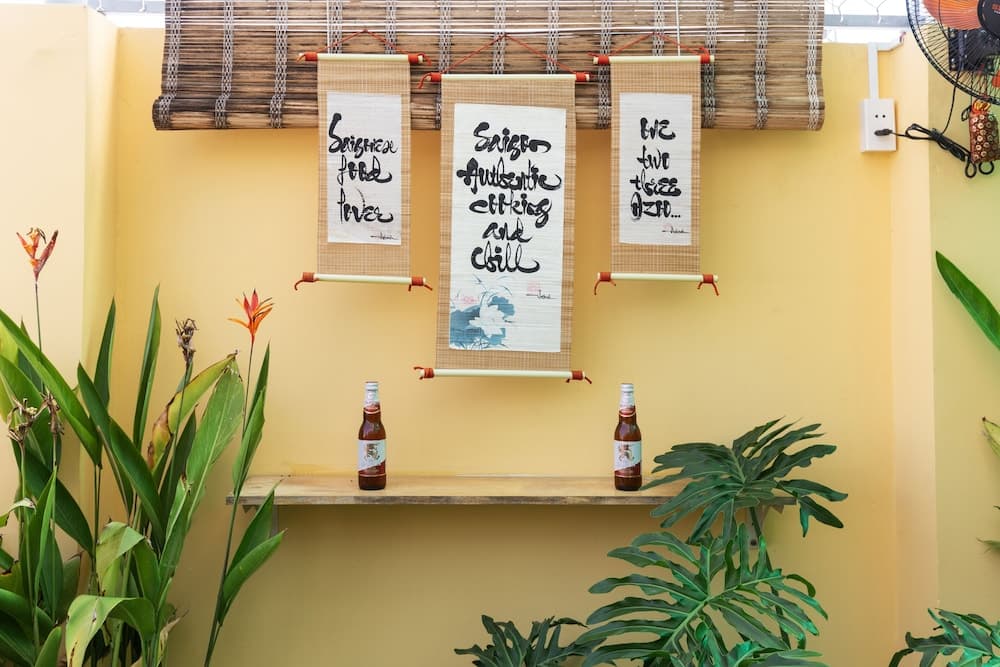 Saigonese
food
lover
Saigon
Authentic
cooking
and
Chill
One
two
three
Dzo...